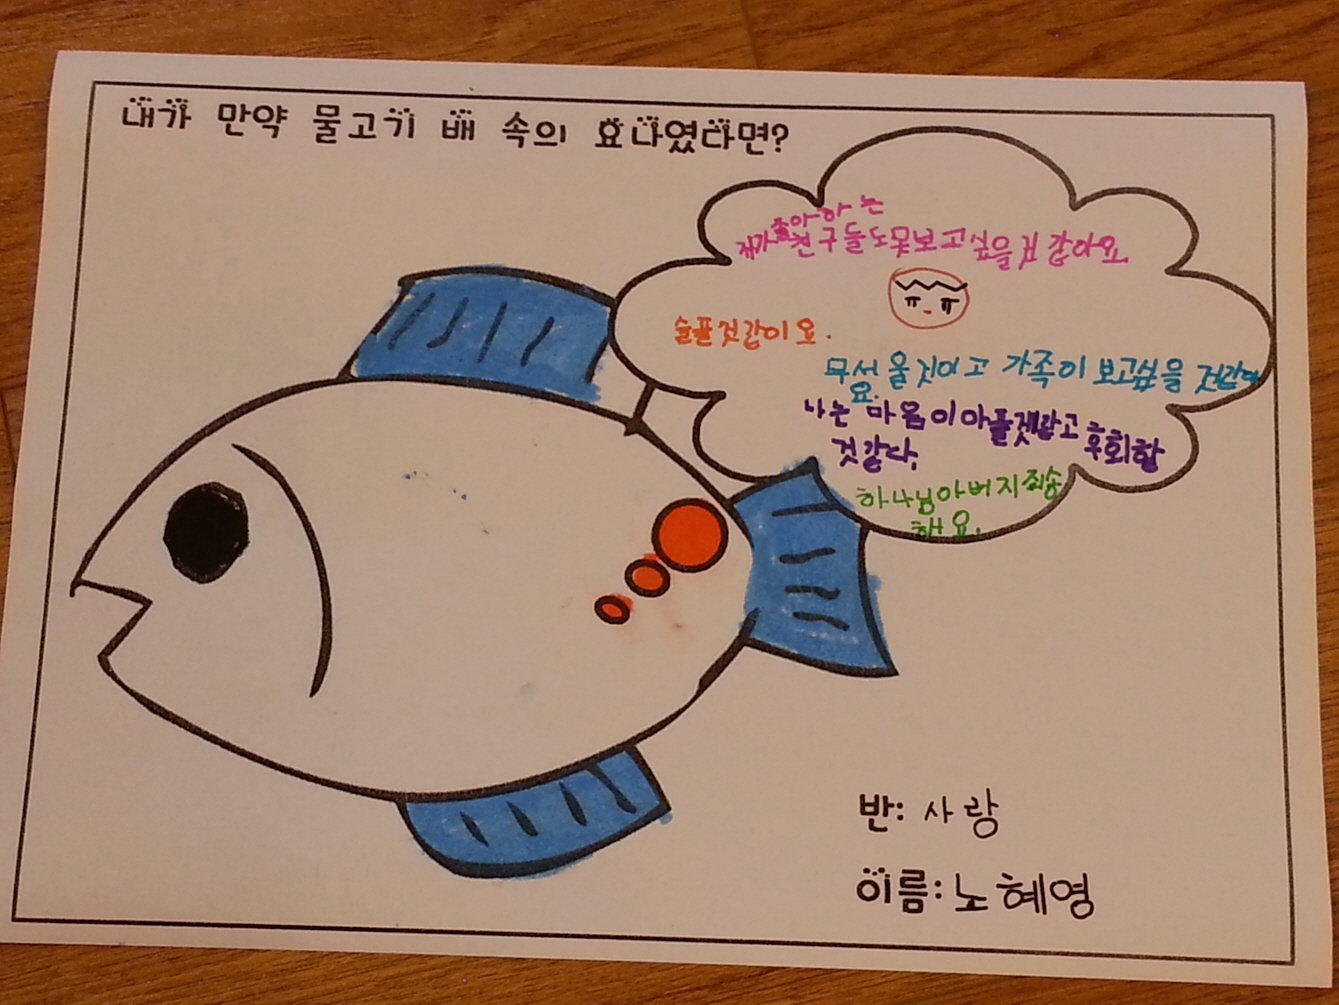 내가 만약 물고기 배 속의 요나였다면?
좋아하는
제가 친구들도 못보고싶을것 같아요
슬플것같이요.
무서울것이고 가족이 보고싶을 것같아
요.
나는 마음이아플겟랖고 후회할
것같다.
하나님아버지죄송
해요.
반: 사랑
이름: 노혜영